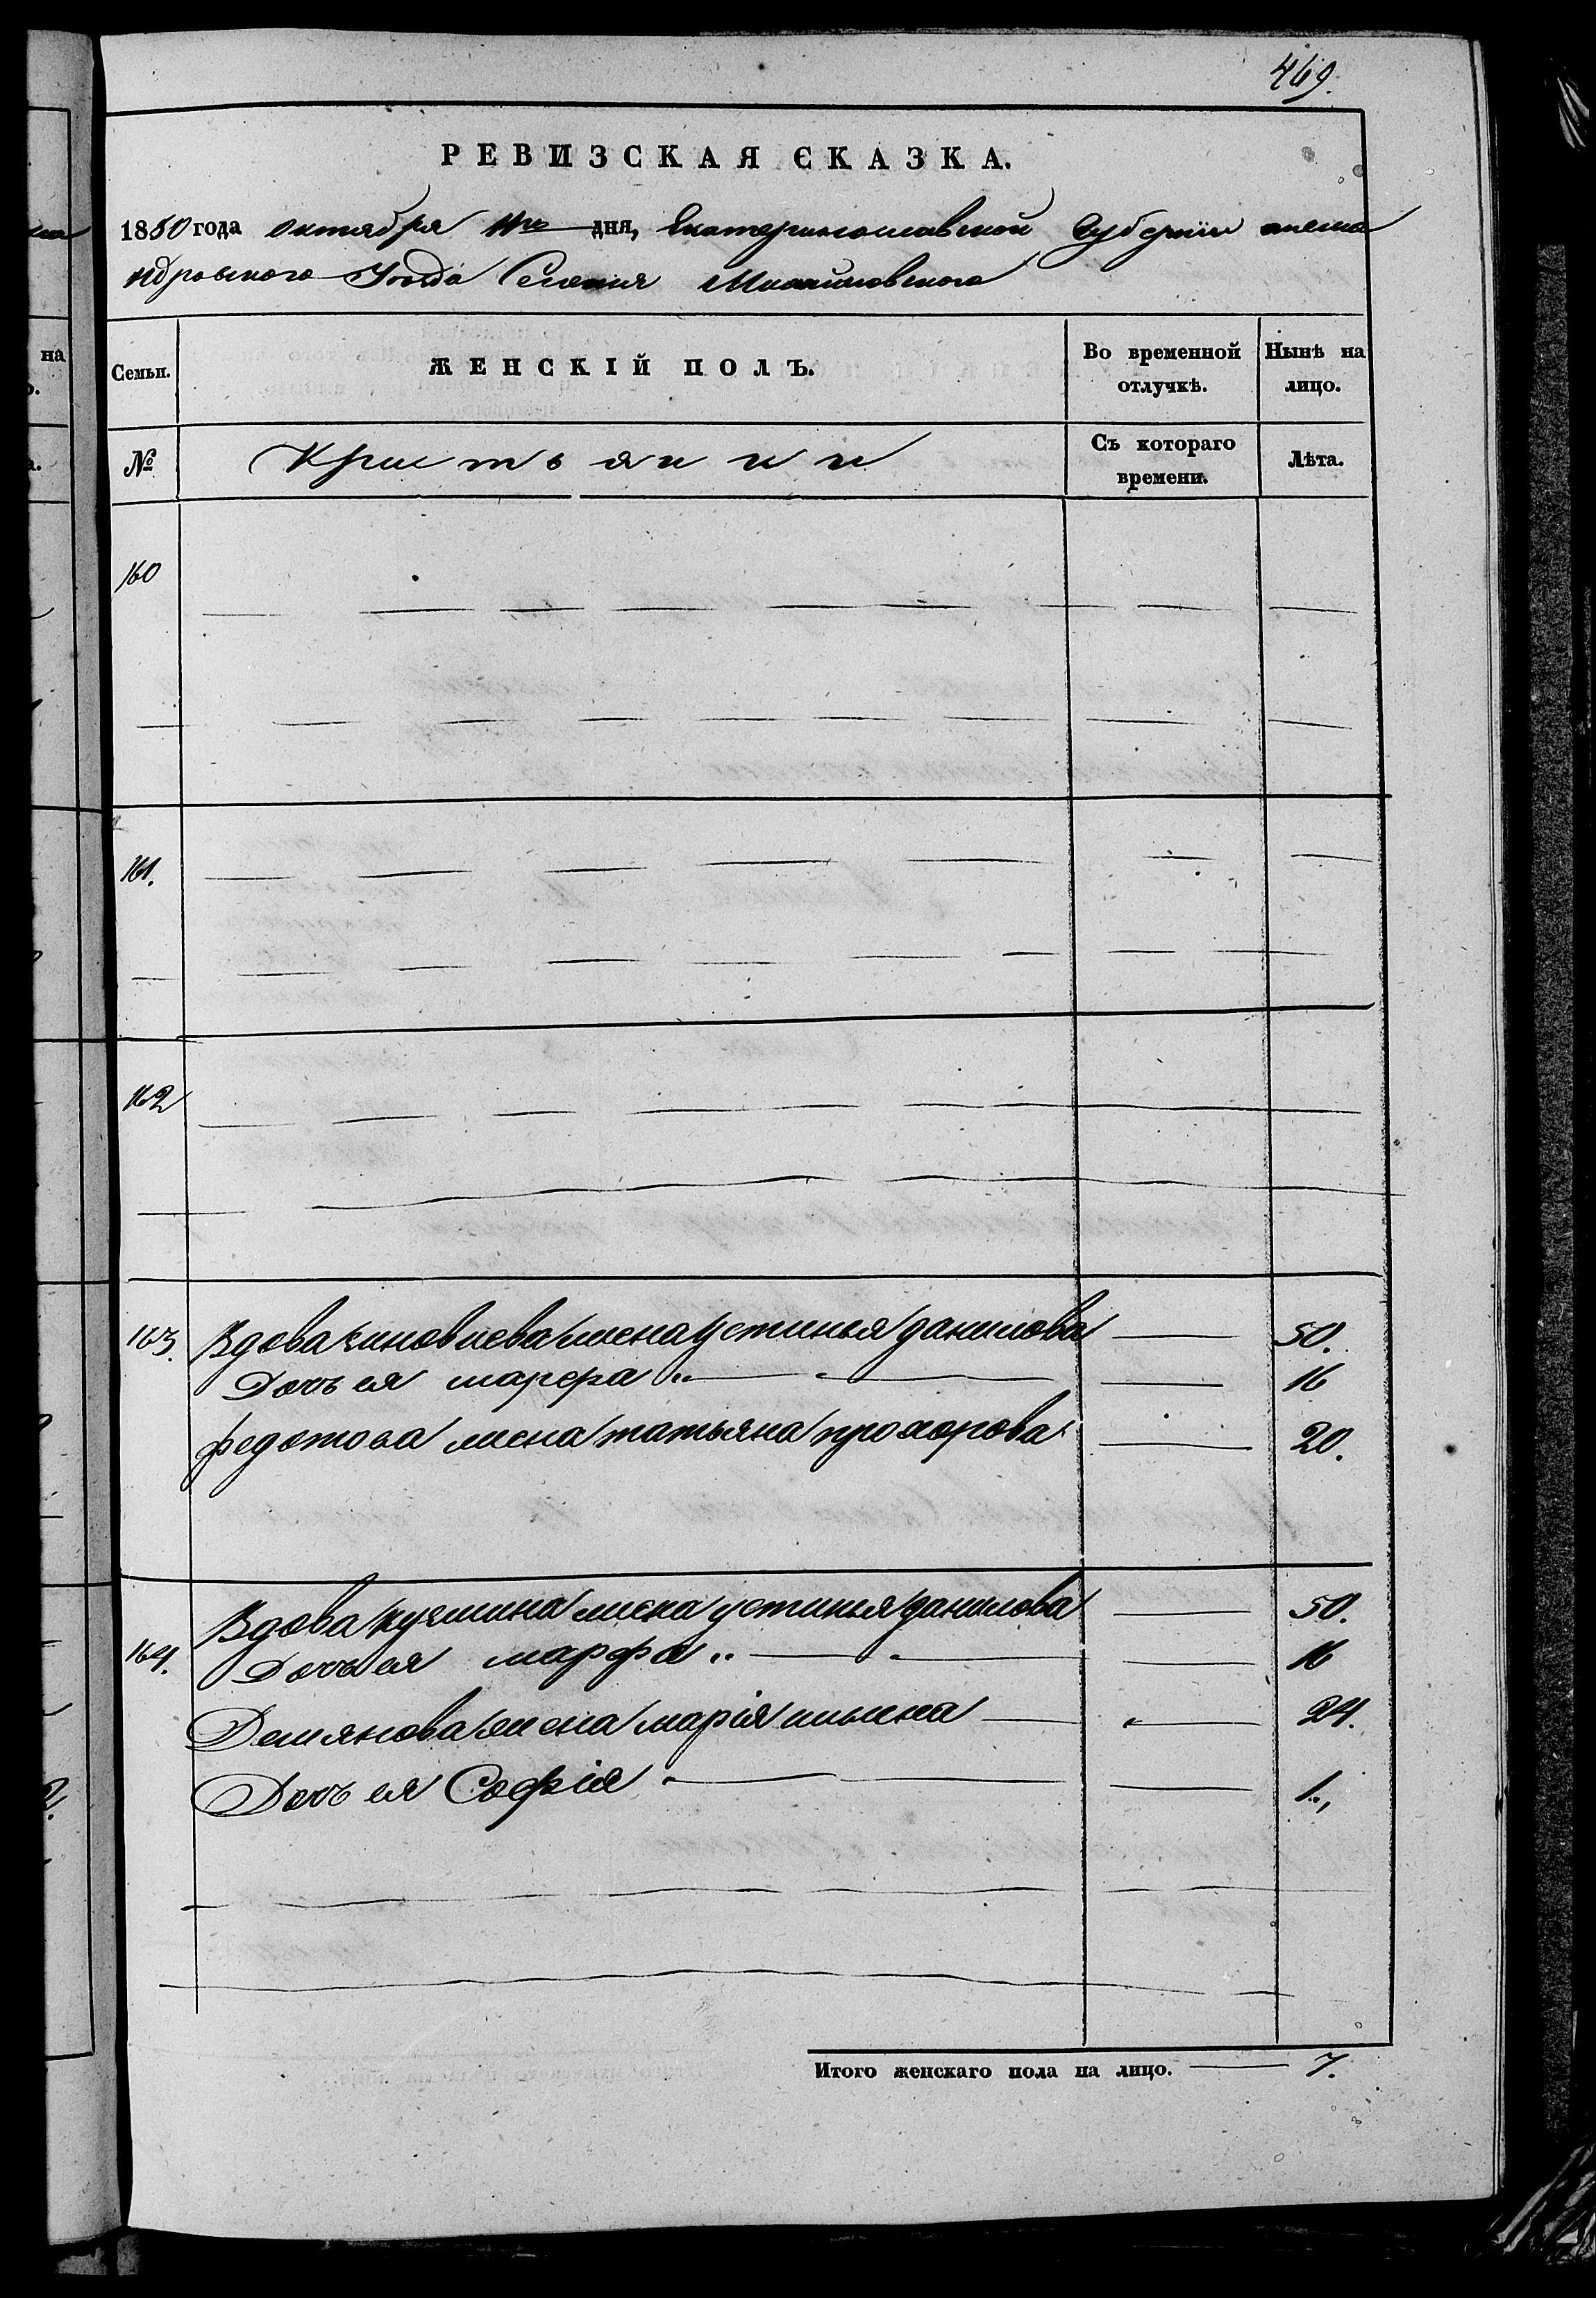 469.
РЕВИЗСКАЯ СКАЗКА.
1850 года октября 11го дня, Екатеринославской Губернiи алекса
ндровского Уезда Селения
Семьи.
ЖЕНСКІЙ ПОЛЪ.
Во временной отлучкѣ.
Нынѣ на лицо.
№
Кристьянки
Съ котораго времени.
Лѣта.
160
161.
162
163. Вдова зиновиева жена устинья данилова 50.
Дочь ея марфа 16
федотова жена татьяна прохорова 20.
164. Вдова кузмина жена устинья данилова 50.
Дочь ея марфа 16
Демянова жена марія ильина 24.
Дочь ея Софія 1.
Итого женскаго пола на лицо. 7.
на